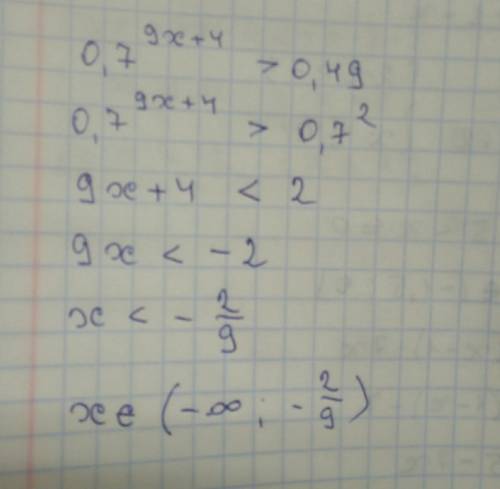 0,7^{9x+4} > 0,49
0,7^{9x+4} > 0,7^2
9x+4 < 2
9x < -2
x < - 2/9
x ∈ (-∞ ; - 2/9)